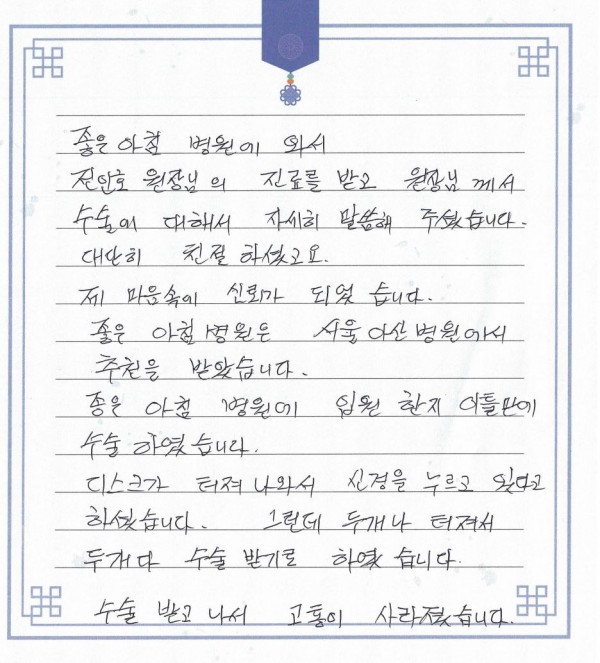 좋은 아침 병원에 와서
전안호 원장님의 진료를 받고 원장님께서
수술에 대해서 자세히 말씀해 주셨습니다.
대단히 친절 하셨고요.
제 마음속에 신뢰가 되었습니다.
좋은 아침병원은 서울 아산 병원에서
추천을 받았습니다.
좋은 아침 병원에 입원 한지 이틀만에
수술 하였습니다.
디스크가 터져 나와서 신경을 누르고 있다고
하셨습니다. 그런데 두개나 터져서
두개 다 수술 받기로 하였습니다.
수술 받고 나서 고통이 사라졌습니다.